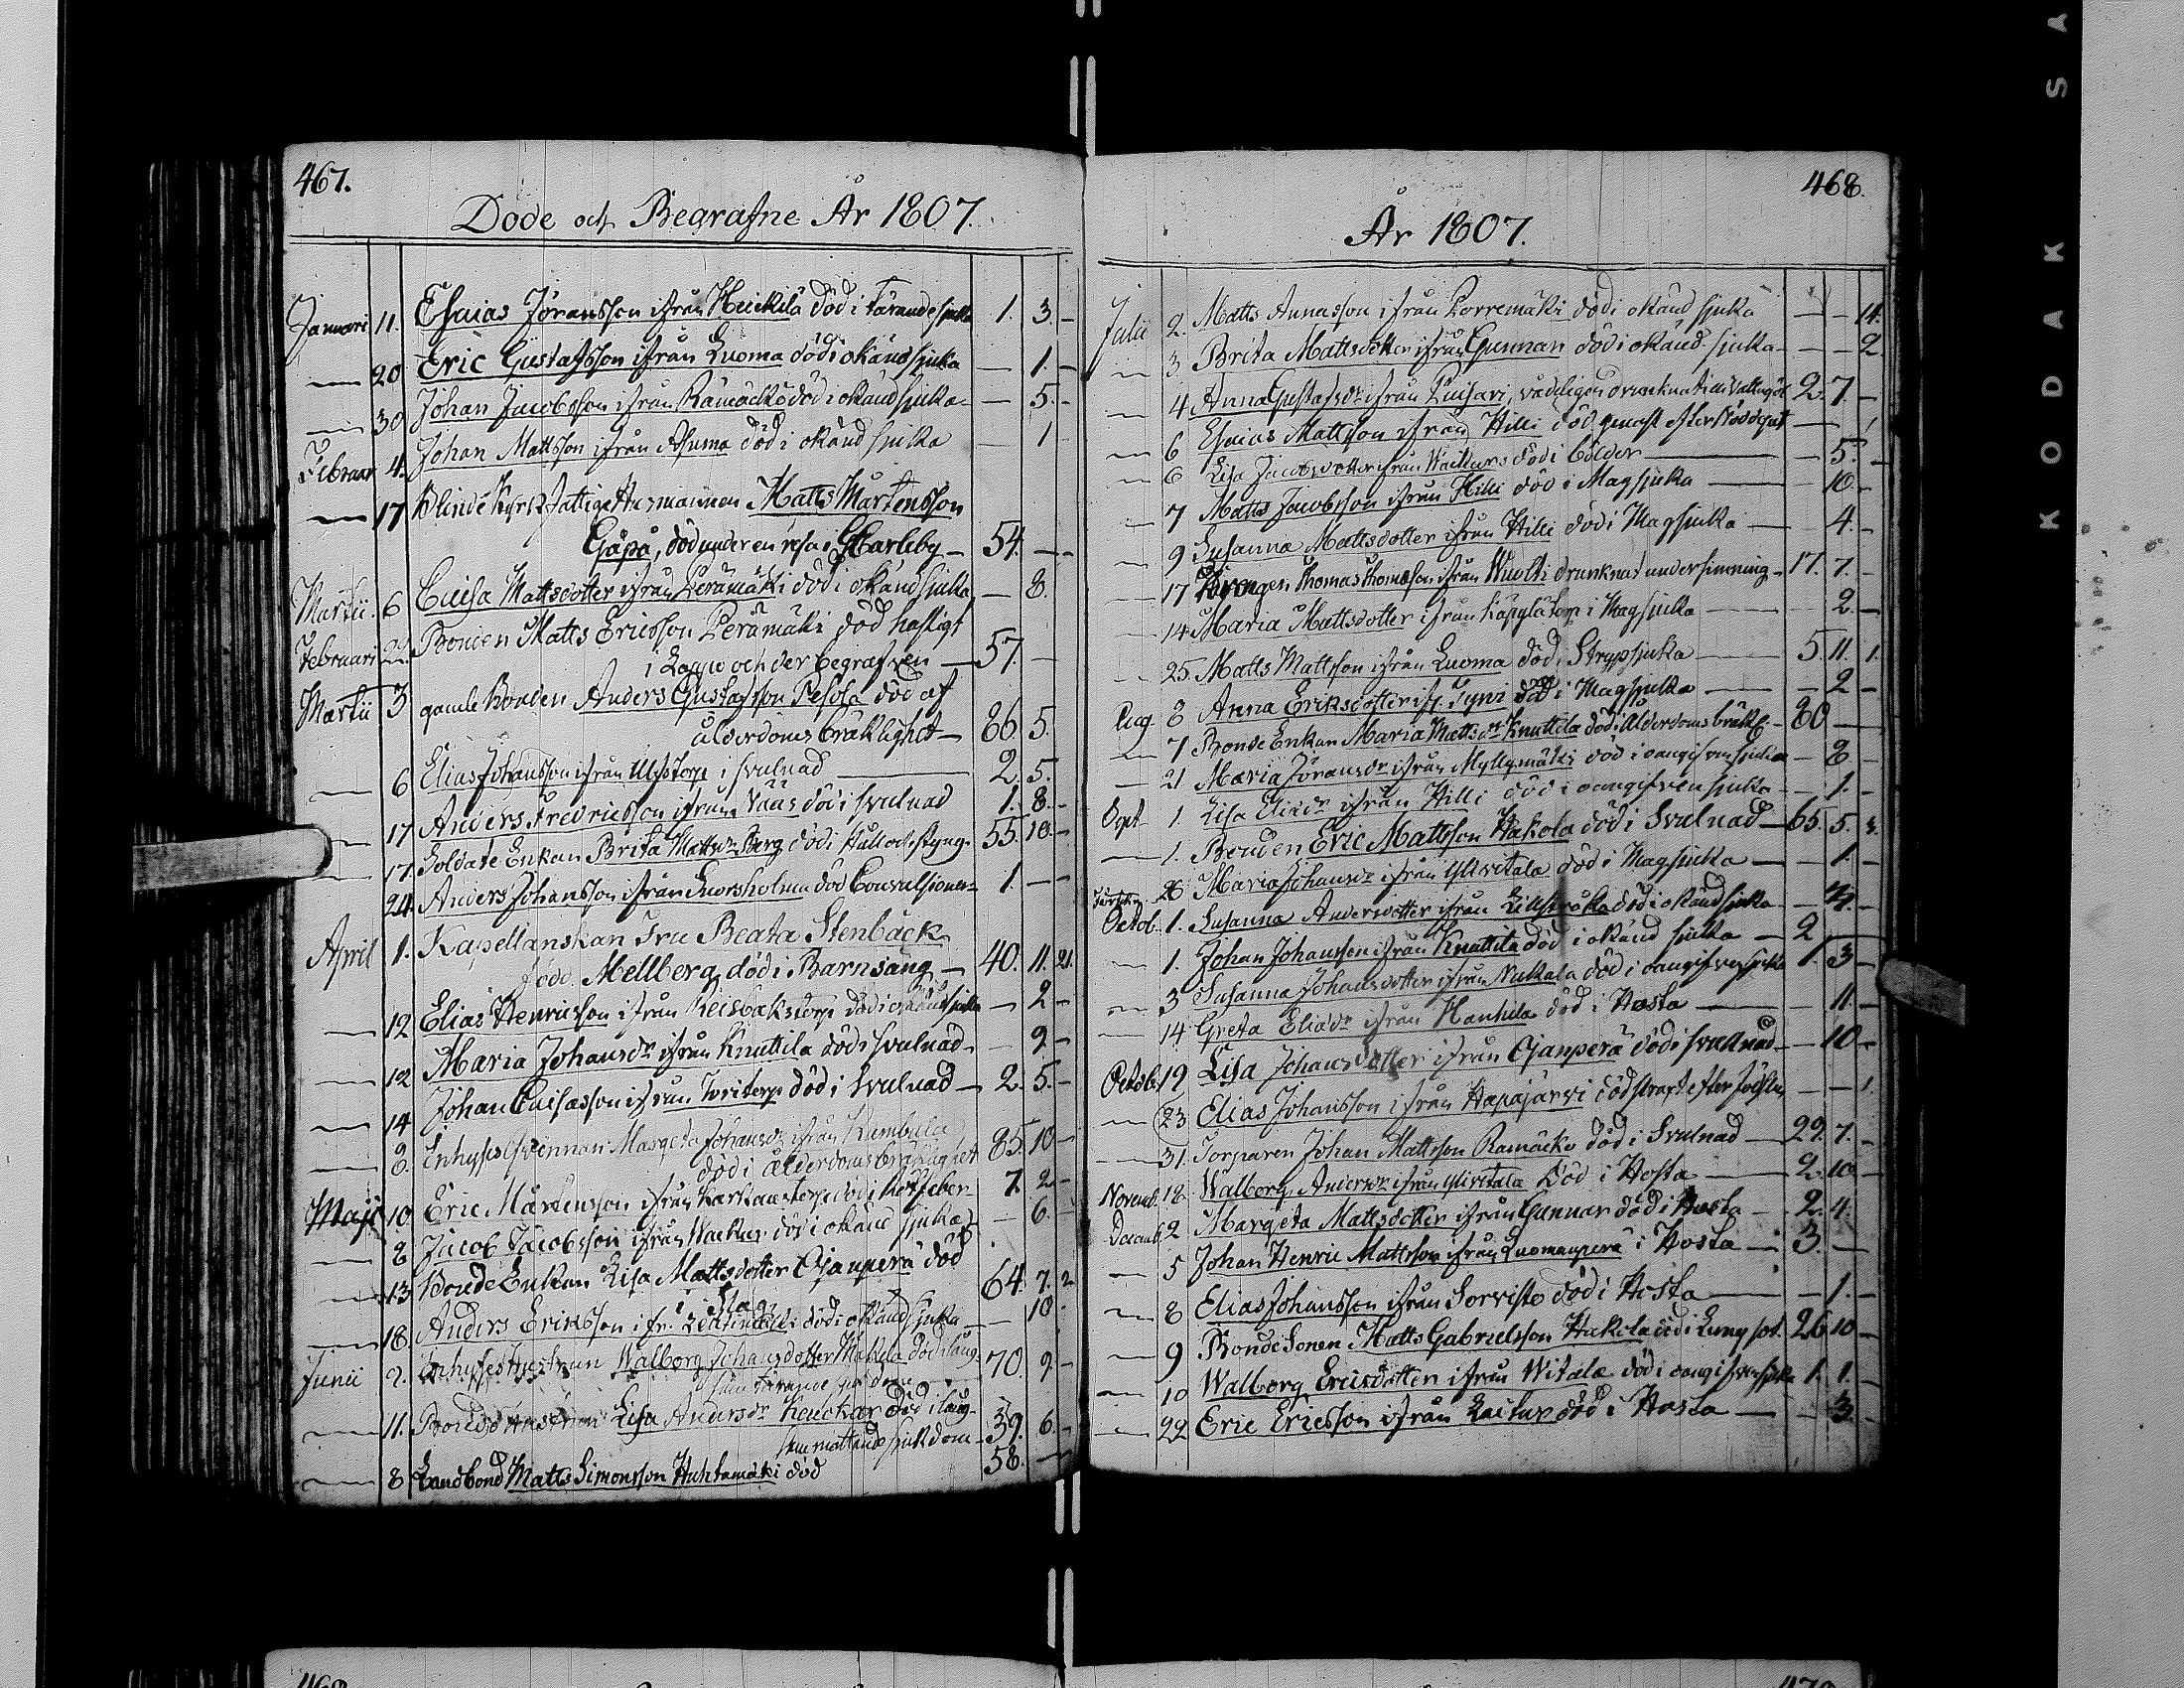 467.
Döde och Begrafne År 1807.
Januari 11. Esaias Jöransson ifrån Heickilä död i tärande sjuka 1. 3. -
20 Eric Gustafsson ifrån Luoma död i okänd sjuka - 1. -
30 Johan Jacobsson ifrån Rämäckö död i okänd sjuka - 5. -
Februar 4. Johan Mattsson ifrån Asuma död i okänd sjuka - 1
17 Blinde fattige Husmannen Matts Mårtensson
Gåpå, död under en resa i GCarleby - 54. - -
Martii. 6 Caisa Mattsdotter ifrån Perämäki död i okänd sjuka - 8.
Februari 22. Bonden Matts Ericsson Perämäki död hastigt
i Lappo och der begrafven - 57. -
Martii 3 gamle Bonden Anders Gustafsson Pesola död af
ålderdoms bräklighet - 86. 5.
6 Elias Johansson ifrån Ulfstorp i svulnad - 2. 5.
17 Anders Fredricsson ifrån Wäås död i svulnad 1. 8. -
17. Soldate Enkan Brita Mattsdr Berg död i Håll och styng 55. 10. -
24. Anders Johansson ifrån Luorsholma död Convulsioner 1. - -
April 1. Kapellanskan Fru Beata Stenbäck
född Mellberg död i Barnsäng - 40. 11. 21.
12 Elias Henricsson ifrån död i okänd sjuka - 2 -
12 Maria Johansdr ifrån Knuttila död i svulnad - 9. -
14 Johan Caisasson ifrån död i svulnad - 2. 5. -
8. Inhyses Qvinnan Margeta Johansdr ifrån Kambula
död i ålderdoms bräklighet 85. 10 -
Maji 10 Eric Mårtensson ifrån död i 7. 2 -
2 Jacob Jacobsson ifrån Wacker död i okänd sjuka - 6. -
13 Bonde Enkan Lisa Mattsdotter Ojanperä död
i Slag 64. 7. 2
18. Anders Eriksson ifr. död i okänd sjuka - 10.
Junii 2. Inhyses Hustrun Walborg Johansdotter Mäkelä död i lång
sam tärande 70. 9. -
11. Bonde Hustrun Lisa Andersdr död i lång
sam mattande sjukdom - 39. 6. -
8 Landbond Matts Simonsson Huhtamäki död 58. -
468.
År 1807.
Julii 2. Matts Annasson ifrån Porremäki död i okänd sjuka - - 14.
3 Brita Mattsdotter ifrån Gunnar död i okänd sjuka - - 2
4 Anna Gustafsdr ifrån Luisari, vådeligen drunknat i en vattugöl 2. 7. -
6 Esaias Mattsson ifrån Hilli död genast efter Nöddopet - 1
6 Lisa Jacobsdotter ifrån Wackurs död i bölder - 5. -
7 Matts Jacobsson ifrån Hilli död i Magsjuka - 10. -
9 Susanna Mattsdotter ifrån Hilli död i Magsjuka - 4. -
17 Drengen Thomas Thomasson ifrån Wuolti drunknat under simning - 17. 7. -
14 Maria Mattsdotter ifrån i Magsjuka - 2. -
25. Matts Mattsson ifrån Luoma död i Strypsjuka - 5. 11. 1.
Aug. 8 Anna Eriksdotter ifr. Tyni död i Magsjuka - 2 -
7 Bonde Enkan Maria Mattsdr Knuttila död i Ålderdoms bräkl. - 80 -
21 Maria Jöransdr ifrån Myllymäki död i oangifven sjuka - 8. -
1. Lisa Eliædr ifrån Hilli död i oangifven sjuka - 1. -
1. Bonden Eric Mattsson Hakola död i Svulnad - 65. 5. 3.
26 Maria Johansdr ifrån Yliwitala död i Magsjuka - 1. -
Octob. 1. Susanna Andersdotter ifrån död i okänd sjuka - 4. -
1. Johan Johansson ifrån Knuttila död i okänd sjuka - 2
3 Susanna Johansdotter ifrån Nukala död i oangifven sjuka 1. 3 -
14 Greta Eliædr ifrån Hanhila död i Hosta - 11. -
Octob. 19 Lisa Johansdotter ifrån Ojanperä död i svullnad - 10 -
23 Elias Johansson ifrån Hapajärwi död strax efter födseln - - 1.
31. Torparen Johan Mattsson Ramäcko död i Svulnad - 29. 7. -
Novemb. 18. Walborg Andersdr ifrån Yliwitala Död i Hosta - 2. 10. -
Decemb. 2 Margeta Mattsdotter ifrån Gunnar död i Hosta - 2. 4.
5 Johan Henric Mattsson ifrån Luomanperä i Hosta - 3. -
8 Elias Johansson ifrån Sorvisto död i Hosta - - 1. -
9 Bonde Sonen Matts Gabrielsson Hakola död i Lungsot. 26 10 -
10 Walborg Ericsdotter ifrån Witala död i oangifven sjuka 1. 1. -
22 Eric Ericsson ifrån död i Hosta - - 3. -
KODAK SA